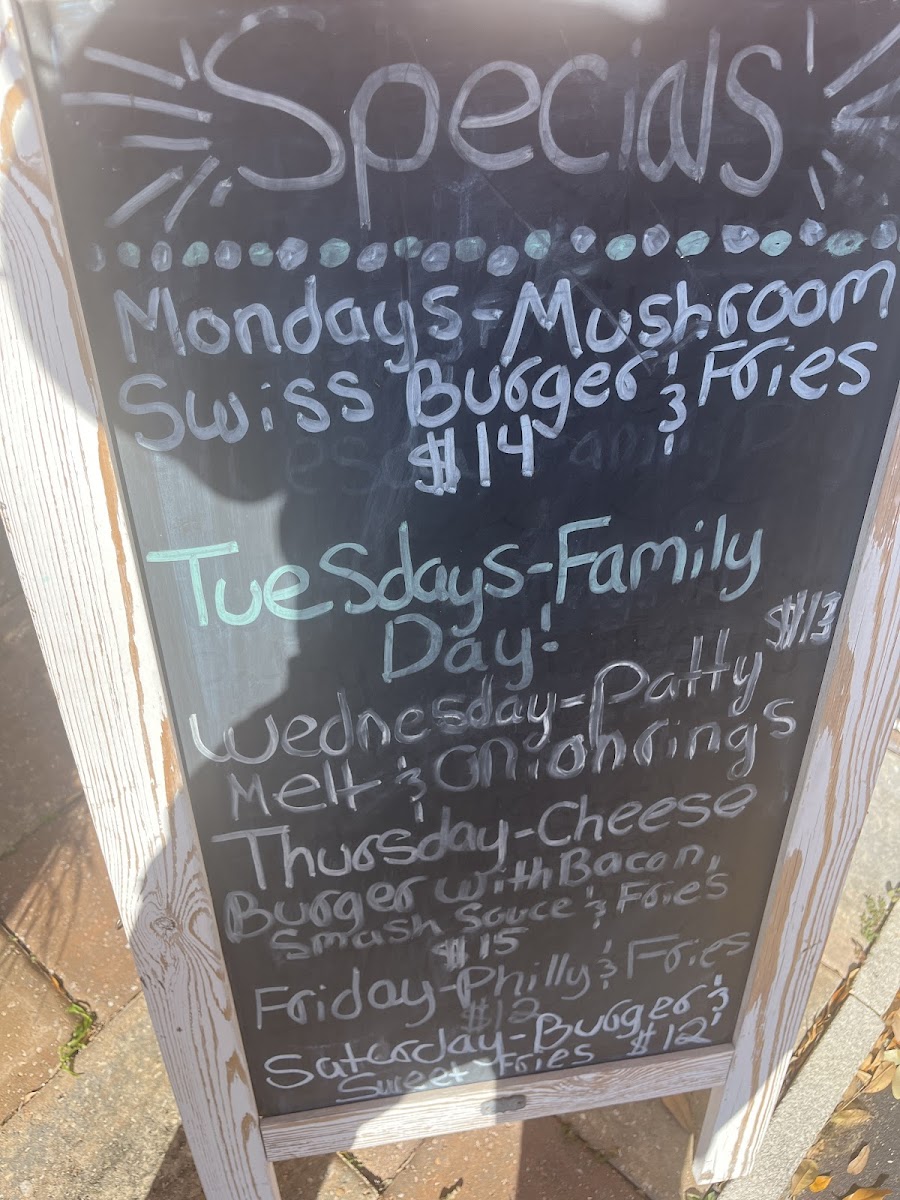 Specials
Mondays-Mushroom
Swiss Burger & Fries
$14
Tuesdays-Family
Day!
$13
Wednesday-Patty
Melt & Onion rings
Thursday-Cheese
Burger with Bacon,
Smash Sauce & Fries
$15
Friday-Philly & Fries
$12
Saturday-Burger &
Sweet Fries $12